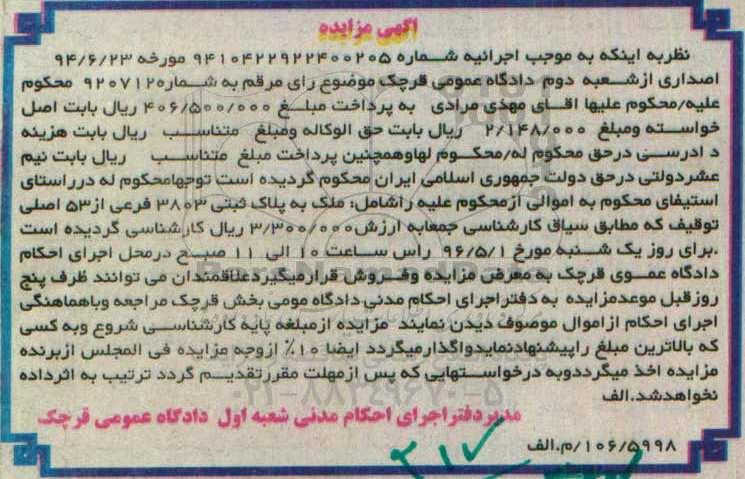 آگهی مزایده
نظر به اینکه به موجب اجرائیه شماره ۹۴۱۰۴۲۲۹۲۲۴۰۰۲۰۵ مورخه ۹۴/۶/۲۳
اصداری ازشعبه دوم دادگاه عمومی قرچک موضوع رای مرقم به شماره۹۲۰۷۱۲ محکوم
علیه/محکوم علیها اقای مهدی مرادی به پرداخت مبلغ ۴۰۶/۵۰۰/۰۰۰ ریال بابت اصل
خواسته ومبلغ ۲/۱۴۸/۰۰۰ ریال بابت حق الوکاله ومبلغ متناسب ریال بابت هزینه
د ادرسی درحق محکوم له/محکوم لهاوهمچنین پرداخت مبلغ متناسب ریال بابت نیم
عشردولتی درحق دولت جمهوری اسلامی ایران محکوم گردیده است توجهامحکوم له درراستای
استیفای محکوم به اموالی ازمحکوم علیه راشامل: ملک به پلاک ثبتی ۳۸۰۳ فرعی از۵۳ اصلی
توقیف که مطابق سیاق کارشناسی جمعابه ارزش۳/۳۰۰/۰۰۰ ریال کارشناسی گردیده است
.برای روز یک شنبه مورخ ۹۶/۵/۱ راس ساعت ۱۰ الی ۱۱ صبح درمحل اجرای احکام
دادگاه عموی قرچک به معرض مزایده وفروش قرارمیگیردعلاقمندان می توانند ظرف پنج
روزقبل موعدمزایده به دفتراجرای احکام مدنی دادگاه مومی بخش قرچک مراجعه وباهماهنگی
اجرای احکام ازاموال موصوف دیدن نمایند مزایده ازمبلغه پایه کارشناسی شروع وبه کسی
که بالاترین مبلغ راپیشنهادنمایدواگذارمیگردد ایضا ۱۰٪ ازوجه مزایده فی المجلس ازبرنده
مزایده اخذ میگرددوبه درخواستهایی که پس ازمهلت مقررتقدیم گردد ترتیب به اثرداده
نخواهدشد.الف
مدیردفتراجرای احکام مدنی شعبه اول دادگاه عمومی قرچک
۱۰۶/۵۹۹۸/م.الف